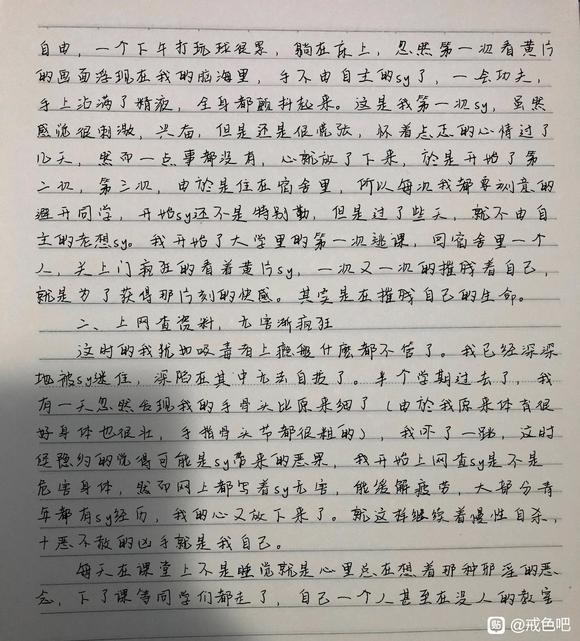 自由，一个下午打玩球很累，躺在床上，忽然第一次看黄片
的画面浮现在我的脑海里，手不由自主的sy了，一会功夫，
手上沾满了精液，全身都颤抖起来。这是我第一次sy，虽然
感觉很刺激，兴奋，但是还是很慌张，怀着忐忑的心情过了
几天，然而一点事都没有，心就放了下来，於是开始了第
二次，第三次，由於是住在宿舍里，所以每次我都要刻意的
避开同学，开始sy还不是特别勤，但是过了些天，就不由自
主的老想sy。我开始了大学里的第一次逃课，回宿舍里一个
人，关上门疯狂的看着黄片sy，一次又一次的摧残着自己，
就是为了获得那片刻的快感。其实是在摧残自己的生命。
二、上网查资料，无害渐疯狂
这时的我犹如吸毒者上瘾般什麽都不管了。我已经深深
地被sy迷住，深陷在其中无法自拔了。半个学期过去了，我
有一天忽然发现我的手骨头比原来细了（由於我原来体育很
好身体也很壮，手指骨头节都很粗的），我吓了一跳，这时
经隐约的觉得可能是sy带来的恶果，我开始上网查sy是不是
危害身体，然而网上都写着sy无害，能缓解疲劳，大部分青
年都有sy经历，我的心又放下来了。就这样继续着慢性自杀，
十恶不赦的凶手就是我自己。
每天在课堂上不是睡觉就是心里总在想着那种邪淫的恶
念，下了课等同学们都走了，自己一个人甚至在没人的教室
贴 @戒色吧